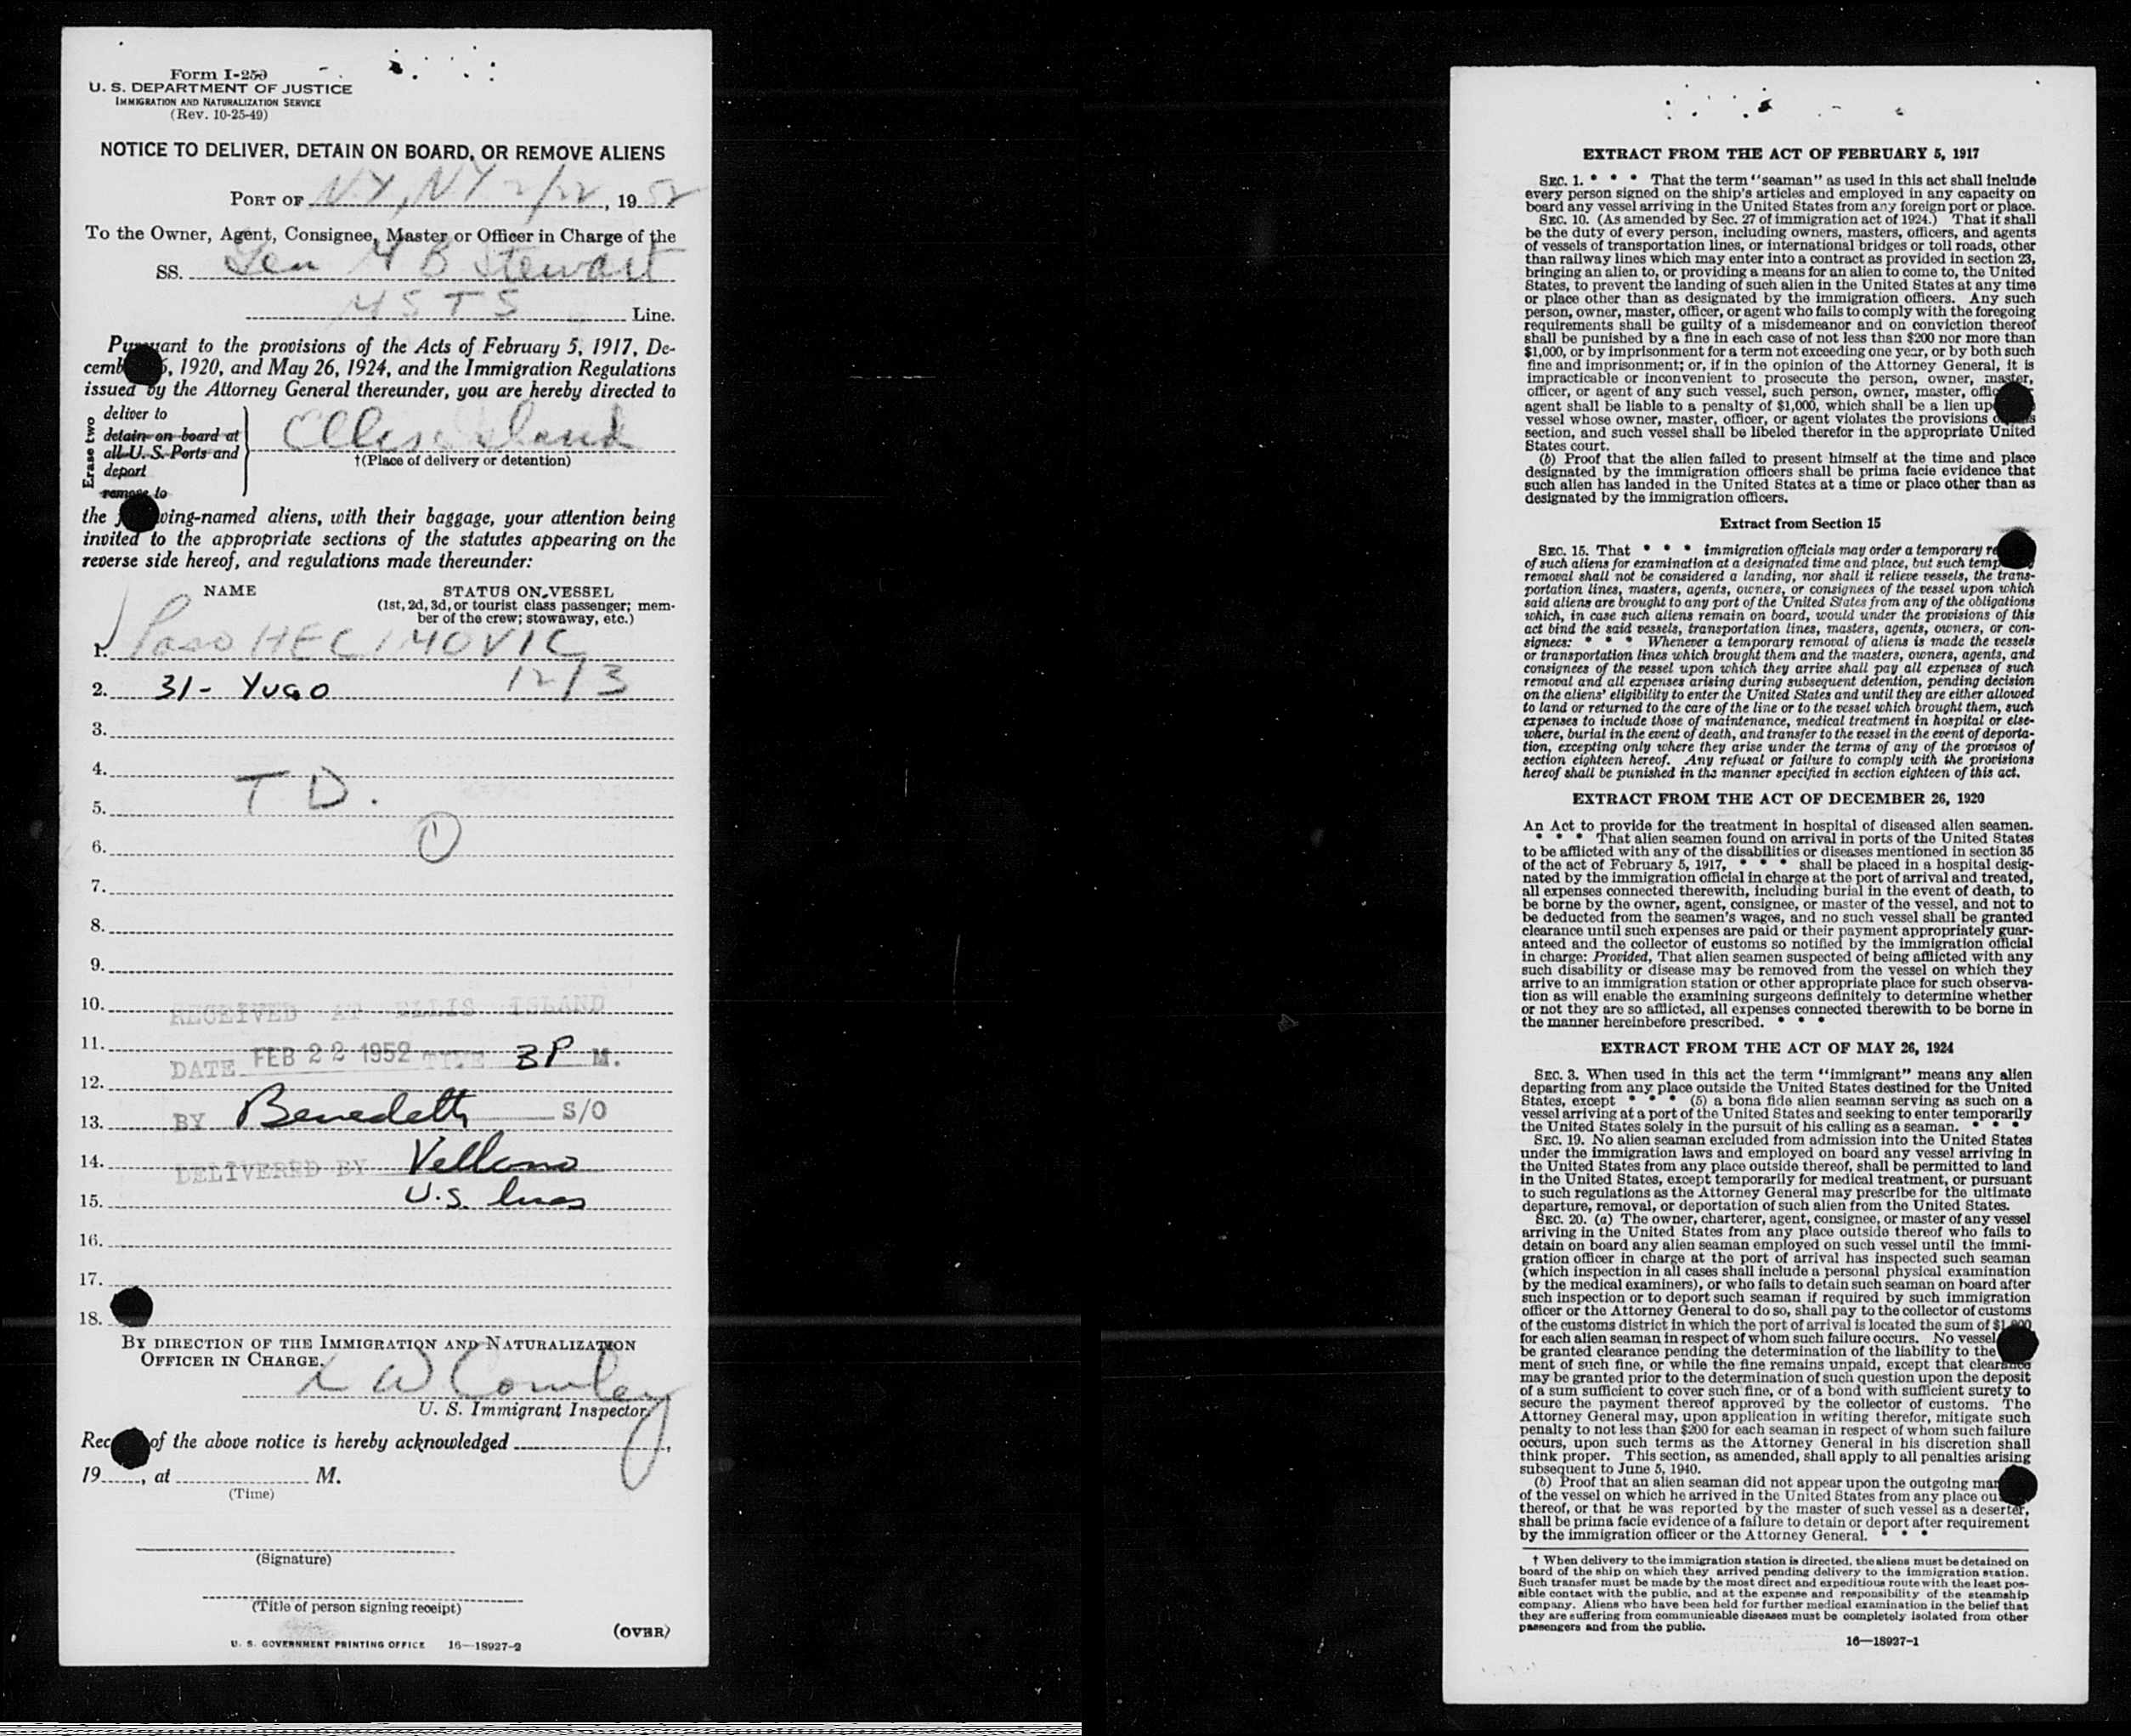 Form I-259
U. S. DEPARTMENT OF JUSTICE
IMMIGRATION AND NATURALIZATION SERVICE
(Rev. 10-25-49)
NOTICE TO DELIVER, DETAIN ON BOARD, OR REMOVE ALIENS
PORT OF N.Y, NY 2/22, 1952
To the Owner, Agent, Consignee, Master or Officer in Charge of the
SS. Gen M B Stewart
MSTS Line.
Pursuant to the provisions of the Acts of February 5, 1917, De-
cemb 6, 1920, and May 26, 1924, and the Immigration Regulations
issued by the Attorney General thereunder, you are hereby directed to
Erase two
deliver to
detain on board at
all U. S. Ports and
deport
remove to
Ellis Island
†(Place of delivery or detention)
the wing-named aliens, with their baggage, your attention being
invited to the appropriate sections of the statutes appearing on the
reverse side hereof, and regulations made thereunder:
NAME STATUS ON VESSEL
(1st, 2d, 3d, or tourist class passenger; mem-
ber of the crew; stowaway, etc.)
1. Paso HECIMOVIC
2. 31- YUGO 12/3
3.
4.
T D.
5.
6. 1
7.
8.
9.
10. RECEIVED AT ELLIS ISLAND
11. DATE FEB 22 1952 TIME 3P M.
12.
13. BY Benedetti S/O
14. DELIVERED BY Vellano
15. U.S. lines
16.
17.
18.
BY DIRECTION OF THE IMMIGRATION AND NATURALIZATION
OFFICER IN CHARGE.
L W Cowley
U. S. Immigrant Inspector.
Rec of the above notice is hereby acknowledged ,
19 , at M.
(Time)
(Signature)
(Title of person signing receipt)
(OVER)
U. S. GOVERNMENT PRINTING OFFICE 16—18927-2
EXTRACT FROM THE ACT OF FEBRUARY 5, 1917
SEC. 1. * * * That the term "seaman" as used in this act shall include
every person signed on the ship's articles and employed in any capacity on
board any vessel arriving in the United States from any foreign port or place.
SEC. 10. (As amended by Sec. 27 of immigration act of 1924.) That it shall
be the duty of every person, including owners, masters, officers, and agents
of vessels of transportation lines, or international bridges or toll roads, other
than railway lines which may enter into a contract as provided in section 23,
bringing an alien to, or providing a means for an alien to come to, the United
States, to prevent the landing of such alien in the United States at any time
or place other than as designated by the immigration officers. Any such
person, owner, master, officer, or agent who fails to comply with the foregoing
requirements shall be guilty of a misdemeanor and on conviction thereof
shall be punished by a fine in each case of not less than $200 nor more than
$1,000, or by imprisonment for a term not exceeding one year, or by both such
fine and imprisonment; or, if in the opinion of the Attorney General, it is
impracticable or inconvenient to prosecute the person, owner, master,
officer, or agent of any such vessel, such person, owner, master, offic
agent shall be liable to a penalty of $1,000, which shall be a lien up
vessel whose owner, master, officer, or agent violates the provisions
section, and such vessel shall be libeled therefor in the appropriate United
States court.
(b) Proof that the alien failed to present himself at the time and place
designated by the immigration officers shall be prima facie evidence that
such alien has landed in the United States at a time or place other than as
designated by the immigration officers.
Extract from Section 15
SEC. 15. That * * * immigration officials may order a temporary re
of such aliens for examination at a designated time and place, but such temp
removal shall not be considered a landing, nor shall it relieve vessels, the trans-
portation lines, masters, agents, owners, or consignees of the vessel upon which
said aliens are brought to any port of the United States from any of the obligations
which, in case such aliens remain on board, would under the provisions of this
act bind the said vessels, transportation lines, masters, agents, owners, or con-
signees: * * * Whenever a temporary removal of aliens is made the vessels
or transportation lines which brought them and the masters, owners, agents, and
consignees of the vessel upon which they arrive shall pay all expenses of such
removal and all expenses arising during subsequent detention, pending decision
on the aliens' eligibility to enter the United States and until they are either allowed
to land or returned to the care of the line or to the vessel which brought them, such
expenses to include those of maintenance, medical treatment in hospital or else-
where, burial in the event of death, and transfer to the vessel in the event of deporta-
tion, excepting only where they arise under the terms of any of the provisos of
section eighteen hereof. Any refusal or failure to comply with the provisions
hereof shall be punished in the manner specified in section eighteen of this act.
EXTRACT FROM THE ACT OF DECEMBER 26, 1920
An Act to provide for the treatment in hospital of diseased alien seamen.
* * * That alien seamen found on arrival in ports of the United States
to be afflicted with any of the disabilities or diseases mentioned in section 35
of the act of February 5, 1917, * * * shall be placed in a hospital desig-
nated by the immigration official in charge at the port of arrival and treated,
all expenses connected therewith, including burial in the event of death, to
be borne by the owner, agent, consignee, or master of the vessel, and not to
be deducted from the seamen's wages, and no such vessel shall be granted
clearance until such expenses are paid or their payment appropriately guar-
anteed and the collector of customs so notified by the immigration official
in charge: Provided, That alien seamen suspected of being afflicted with any
such disability or disease may be removed from the vessel on which they
arrive to an immigration station or other appropriate place for such observa-
tion as will enable the examining surgeons definitely to determine whether
or not they are so afflicted, all expenses connected therewith to be borne in
the manner hereinbefore prescribed. * * *
EXTRACT FROM THE ACT OF MAY 26, 1924
SEC. 3. When used in this act the term "immigrant" means any alien
departing from any place outside the United States destined for the United
States, except * * * (5) a bona fide alien seaman serving as such on a
vessel arriving at a port of the United States and seeking to enter temporarily
the United States solely in the pursuit of his calling as a seaman. * * *
SEC. 19. No alien seaman excluded from admission into the United States
under the immigration laws and employed on board any vessel arriving in
the United States from any place outside thereof, shall be permitted to land
in the United States, except temporarily for medical treatment, or pursuant
to such regulations as the Attorney General may prescribe for the ultimate
departure, removal, or deportation of such alien from the United States.
SEC. 20. (a) The owner, charterer, agent, consignee, or master of any vessel
arriving in the United States from any place outside thereof who fails to
detain on board any alien seaman employed on such vessel until the immi-
gration officer in charge at the port of arrival has inspected such seaman
(which inspection in all cases shall include a personal physical examination
by the medical examiners), or who fails to detain such seaman on board after
such inspection or to deport such seaman if required by such immigration
officer or the Attorney General to do so, shall pay to the collector of customs
of the customs district in which the port of arrival is located the sum of $1,000
for each alien seaman in respect of whom such failure occurs. No vessel
be granted clearance pending the determination of the liability to the
ment of such fine, or while the fine remains unpaid, except that clearance
may be granted prior to the determination of such question upon the deposit
of a sum sufficient to cover such fine, or of a bond with sufficient surety to
secure the payment thereof approved by the collector of customs. The
Attorney General may, upon application in writing therefor, mitigate such
penalty to not less than $200 for each seaman in respect of whom such failure
occurs, upon such terms as the Attorney General in his discretion shall
think proper. This section, as amended, shall apply to all penalties arising
subsequent to June 5, 1940.
(b) Proof that an alien seaman did not appear upon the outgoing man
of the vessel on which he arrived in the United States from any place out
thereof, or that he was reported by the master of such vessel as a deserter,
shall be prima facie evidence of a failure to detain or deport after requirement
by the immigration officer or the Attorney General. * * *
† When delivery to the immigration station is directed, the aliens must be detained on
board of the ship on which they arrived pending delivery to the immigration station.
Such transfer must be made by the most direct and expeditious route with the least pos-
sible contact with the public, and at the expense and responsibility of the steamship
company. Aliens who have been held for further medical examination in the belief that
they are suffering from communicable diseases must be completely isolated from other
passengers and from the public.
16—18927-1